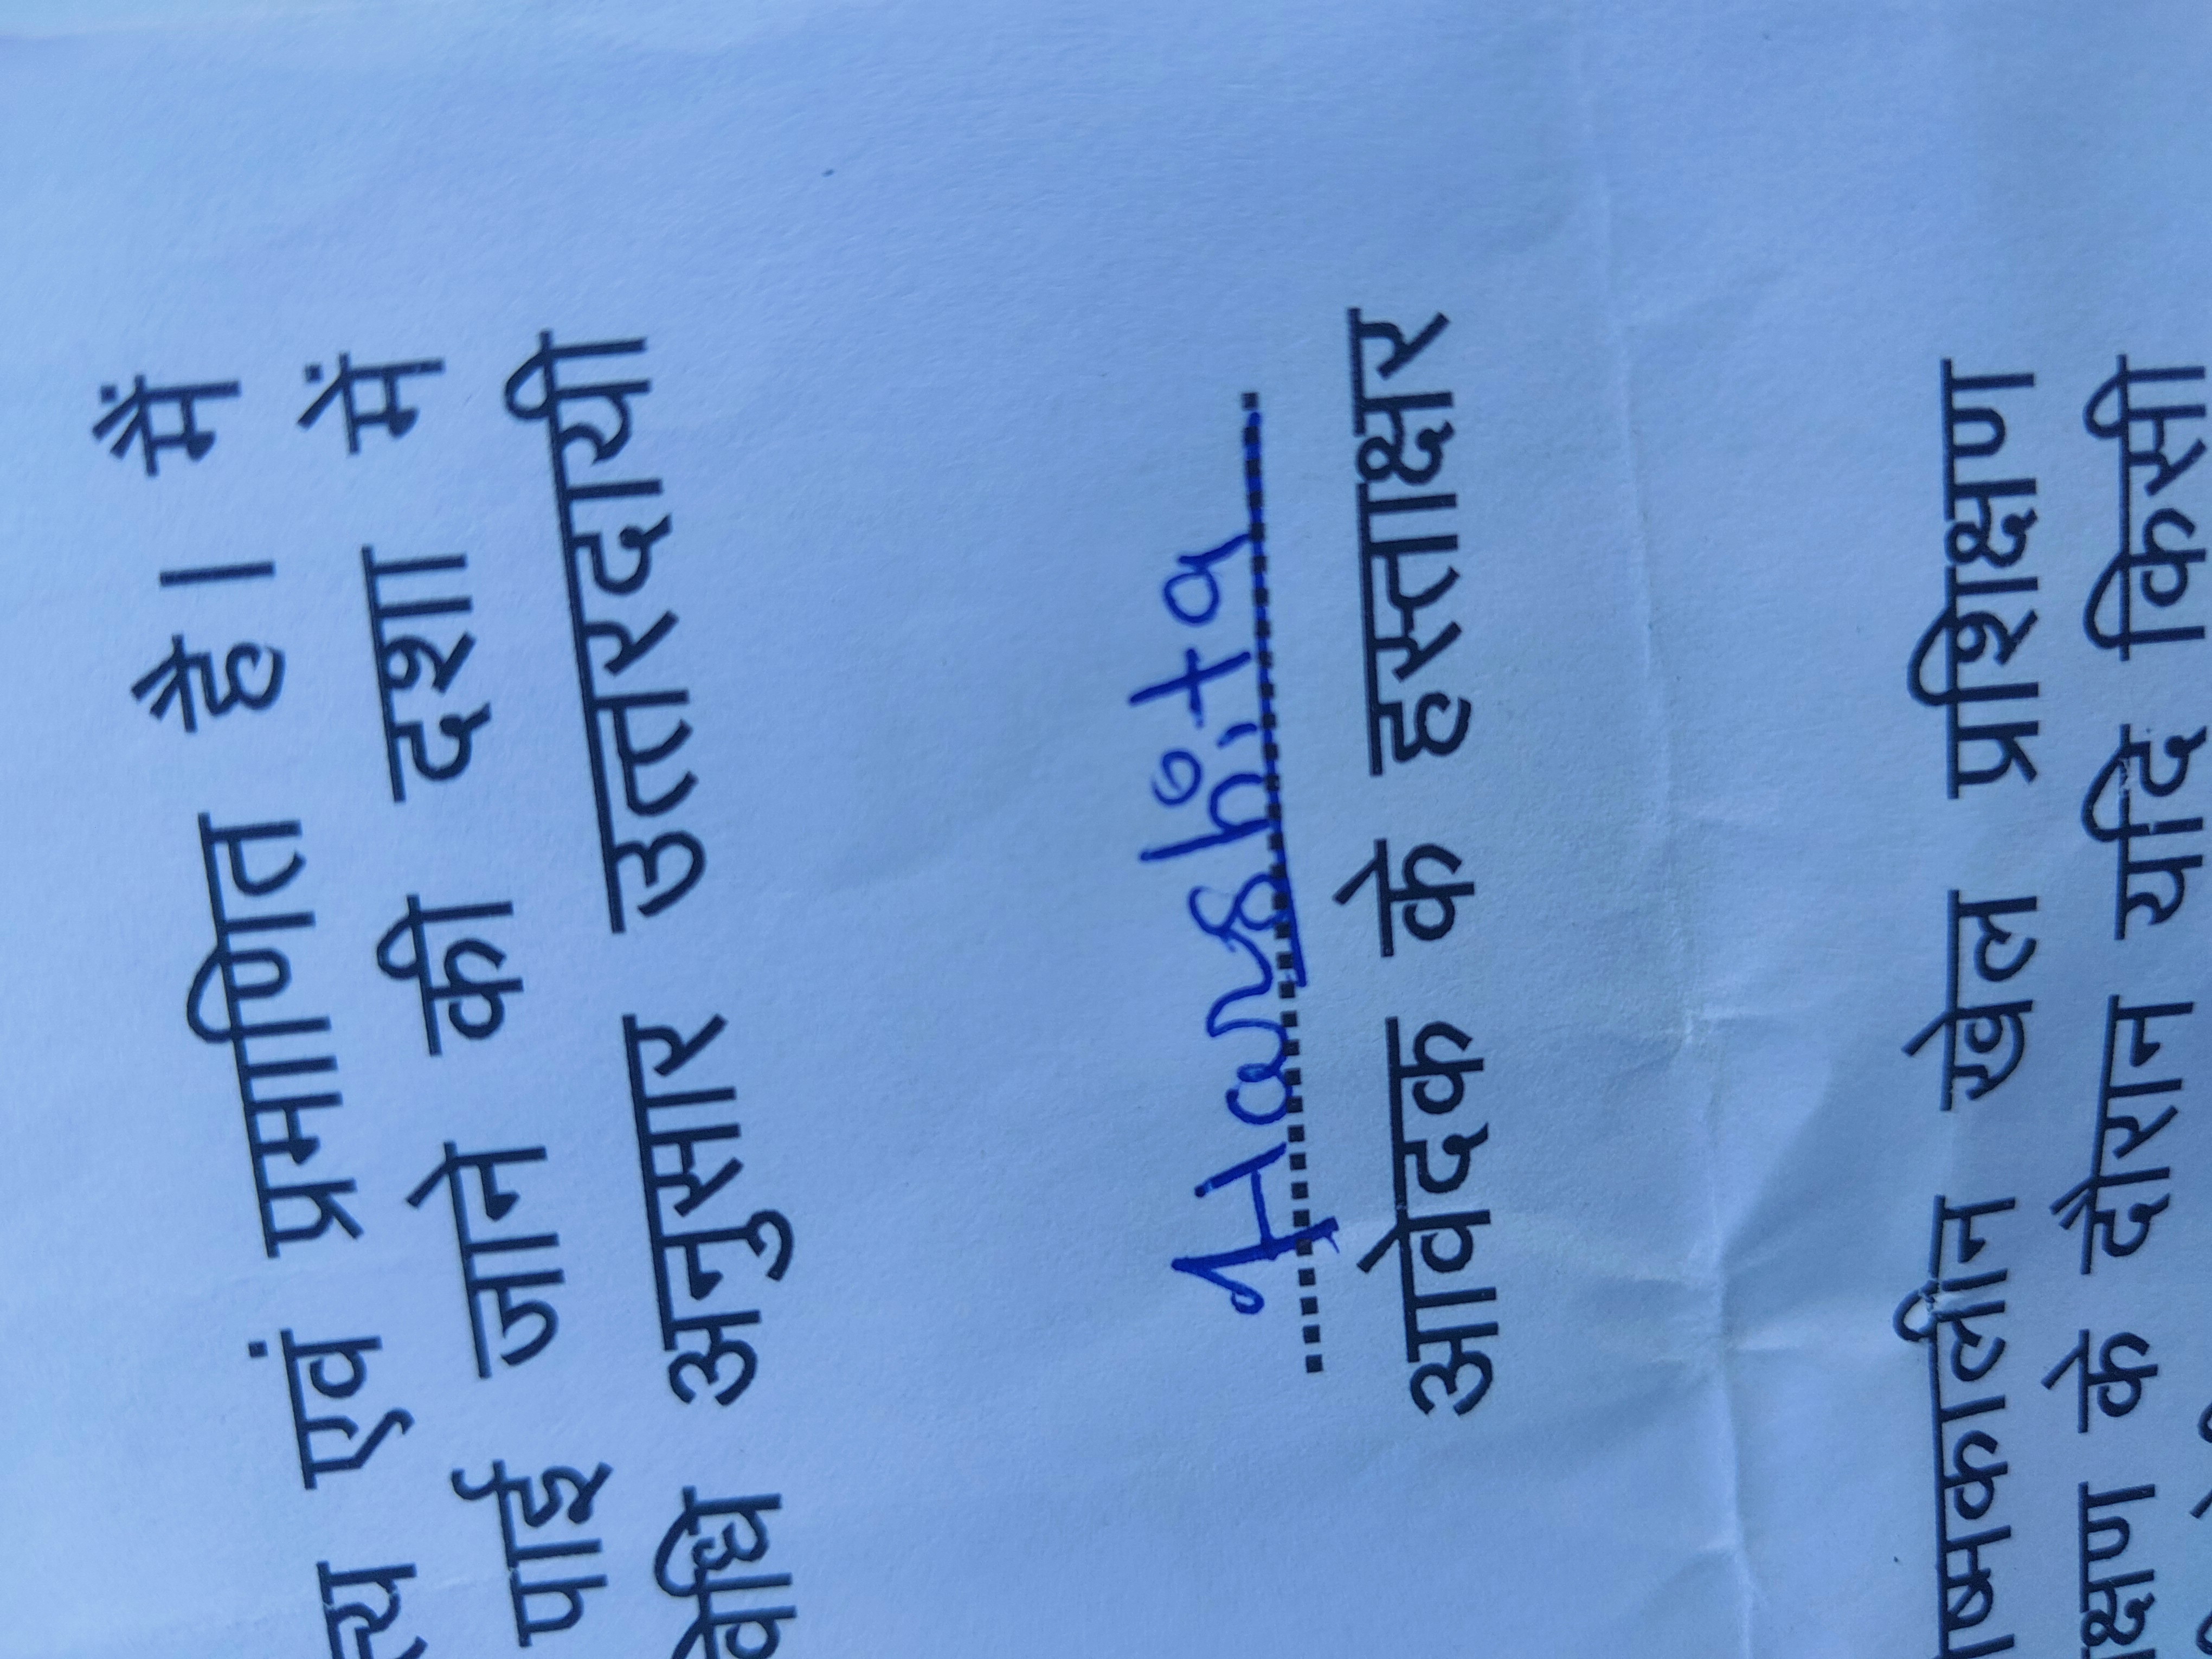 एवं प्रमाणित है। मैं
पाई जाने की दशा में
अनुसार उत्तरदायी
Harshita
आवेदक के हस्ताक्षर
खेल प्रशिक्षण
के दौरान यदि किसी